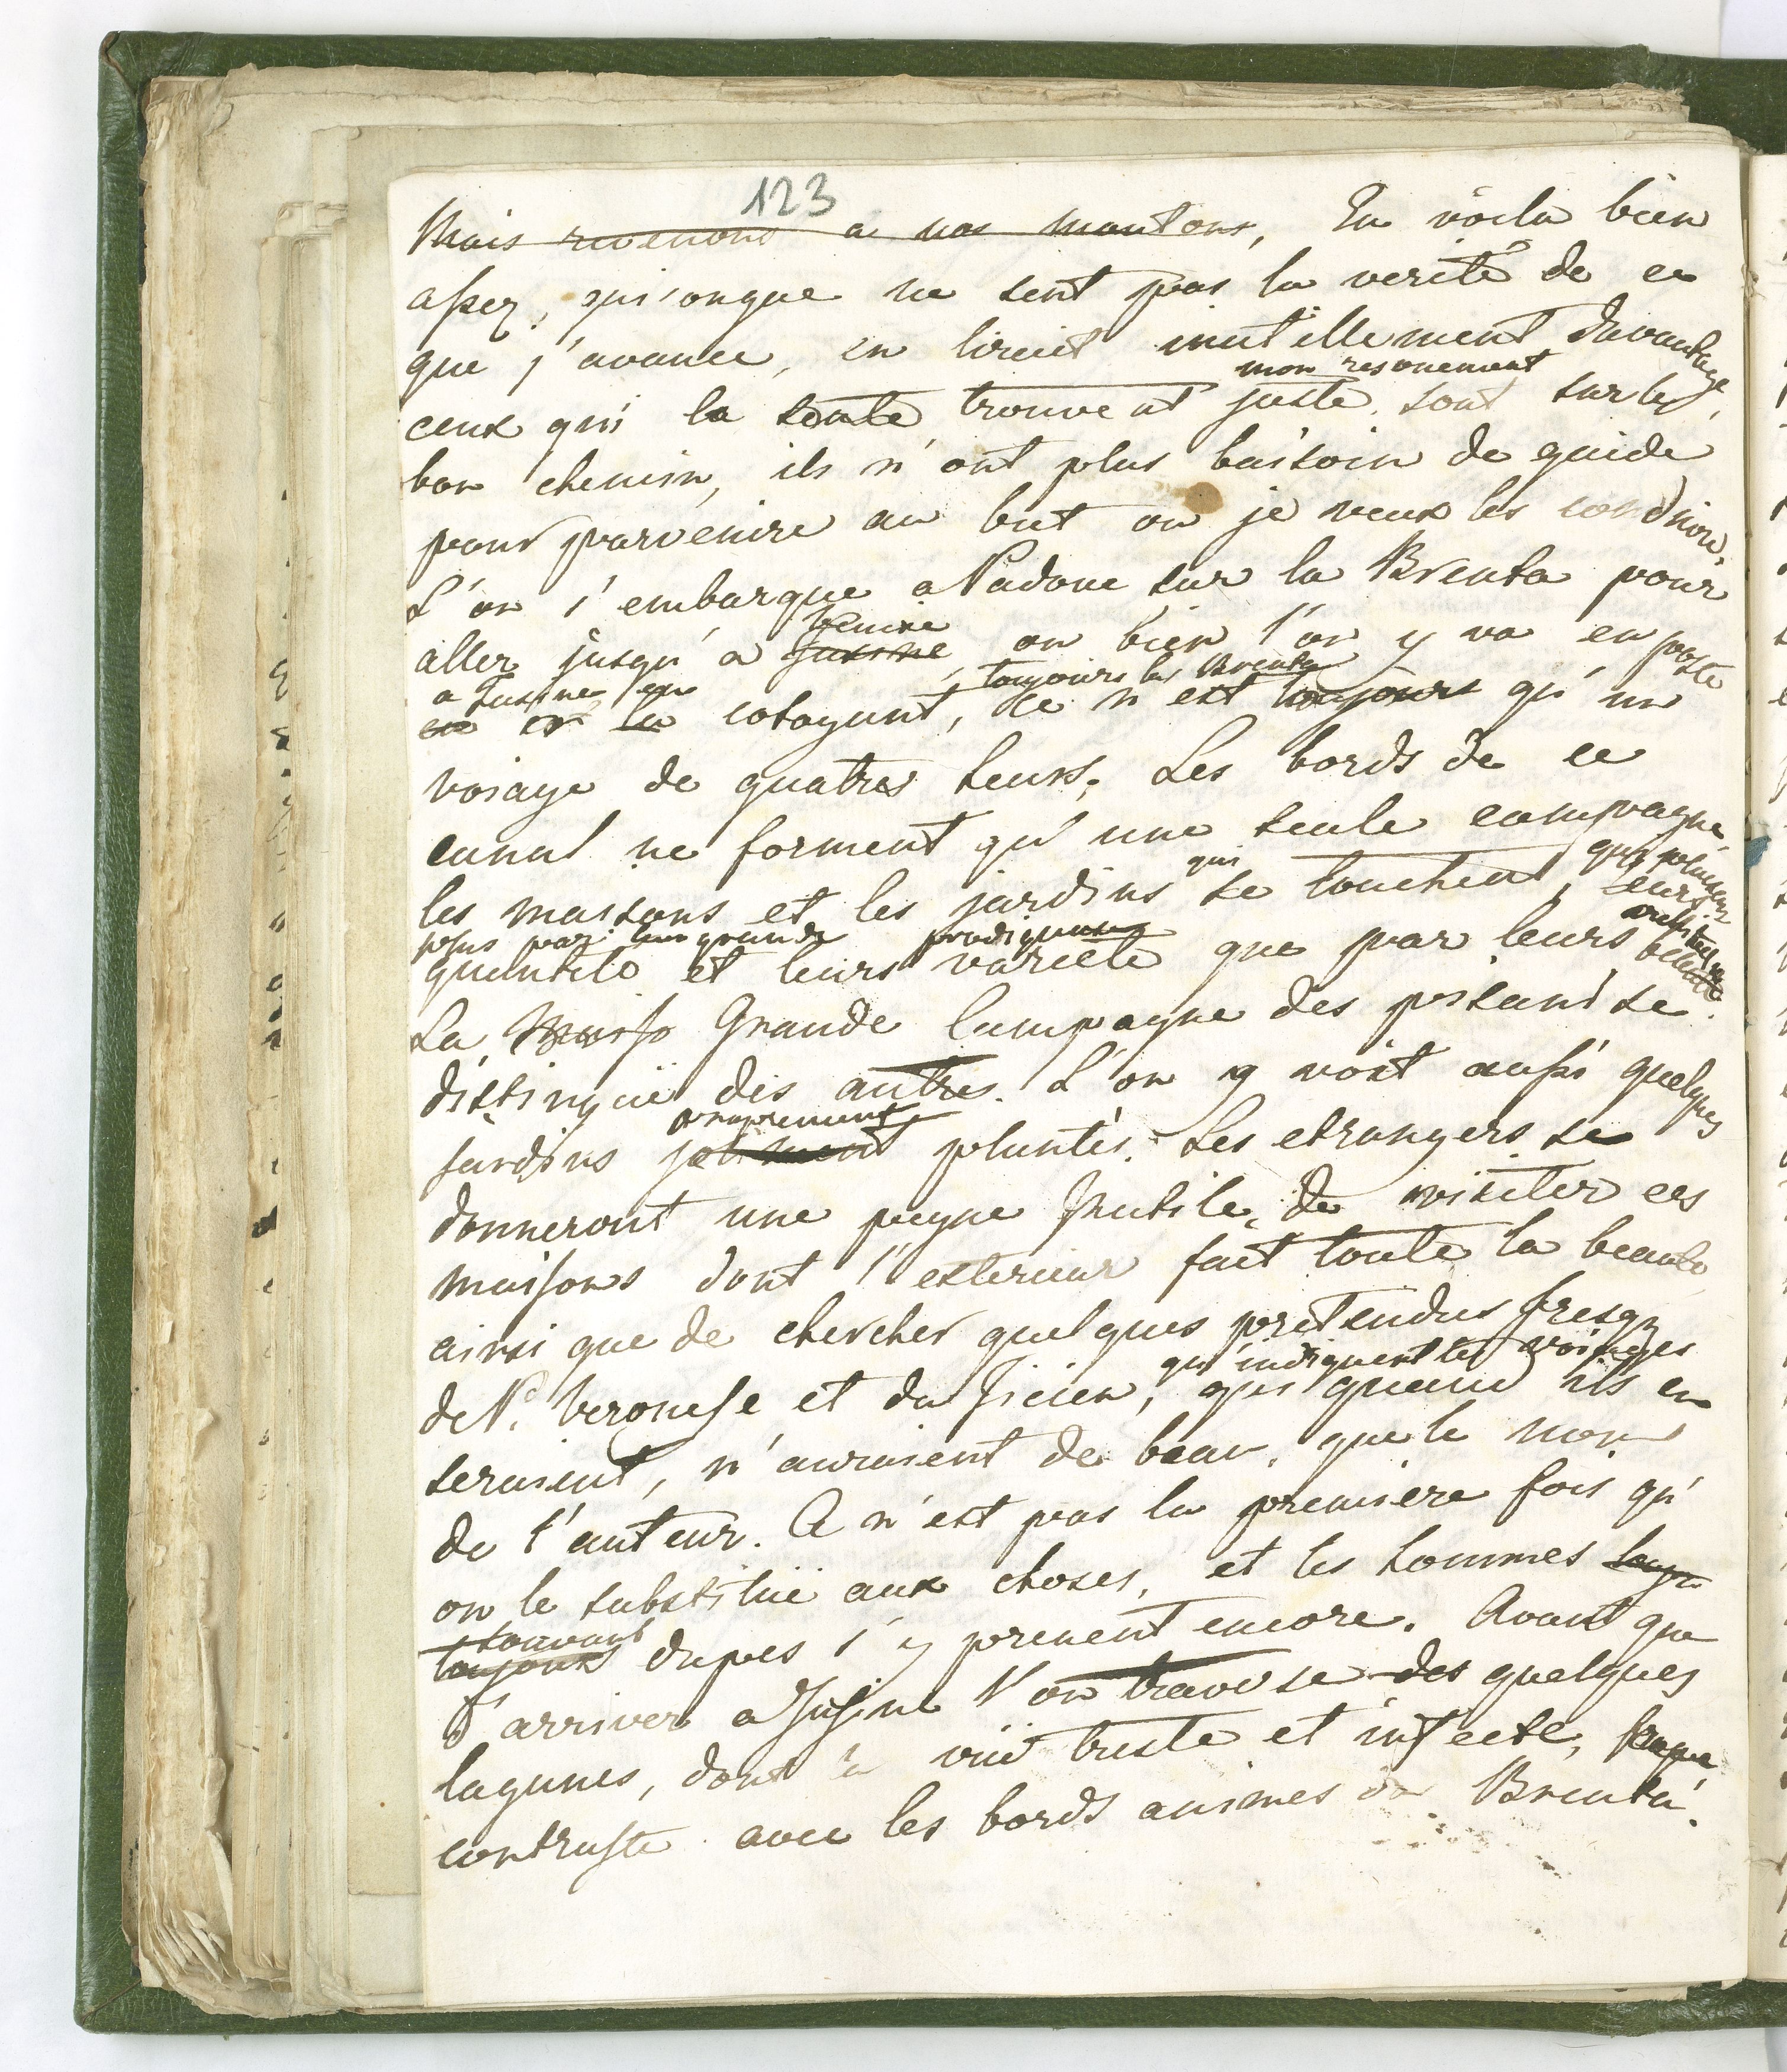 123
Mais revenons a nos moutons, En voila bien
assez, quiconque ne sent pas la verité de ce
que j'avance, en liroit inutillement davantage,
mon resonement
ceux qui la sente trouvent juste, sont sur le
bon chemin, ils n'ont plus baisoin de guide
pour parvenire au but ou je veux les conduire.
L'on s'embarque a Padoue sur la Brenta pour
Venise
aller jusqu'a Fusine, ou bien l'on y va en poste
a Fusine, en toujours la Brenta
en la cotoyant, ce n'est toujours qu'un
voiage de quatres heurs. Les bords de ce
canal ne forment qu'une seule campagne,
qui
les maisons et les jardins se touchent,
plus par leur grande prodigieuse architecture
quantité et leurs varieté que par leurs beauté
La Grande Campagne des pisani se
distinguë des autres. L'on y voit aussi quelques
proprement
jardins joliment plantés. Les etrangers se
donneront une peyne Inutile, de visiter ces
maisons dont l'exterieur fait toute la beauté
ainsi que de chercher quelques pretendus fresqu
qu'indiquent les voisages
de P. Veronese et du Ticien, qui quand ils en
seraient, n'auraient de beau, que le nom
de l'auteur. Ce n'est pas la premiere fois qu'
on le substituë aux choses, et les hommes
souvant
toujours dupes s'y prenent encore. Avant que
d'arriver a Fusine l'on traverse des quelques
lagunes, dont la vuë triste et infecte,
contraste avec les bords animés da Brenta.